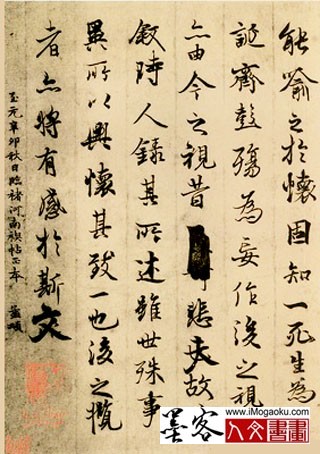 能喻之於懷固知一死生為
誕齊彭殤為妄作後之視
亦由今之視昔悲夫故
敘時人錄其所述雖世殊事
異所以興懷其致一也後之攬
者亦將有感於斯文
至元辛卯秋日臨褚河南禊帖正本
墨客
www.iMogaoku.com
人文書畫